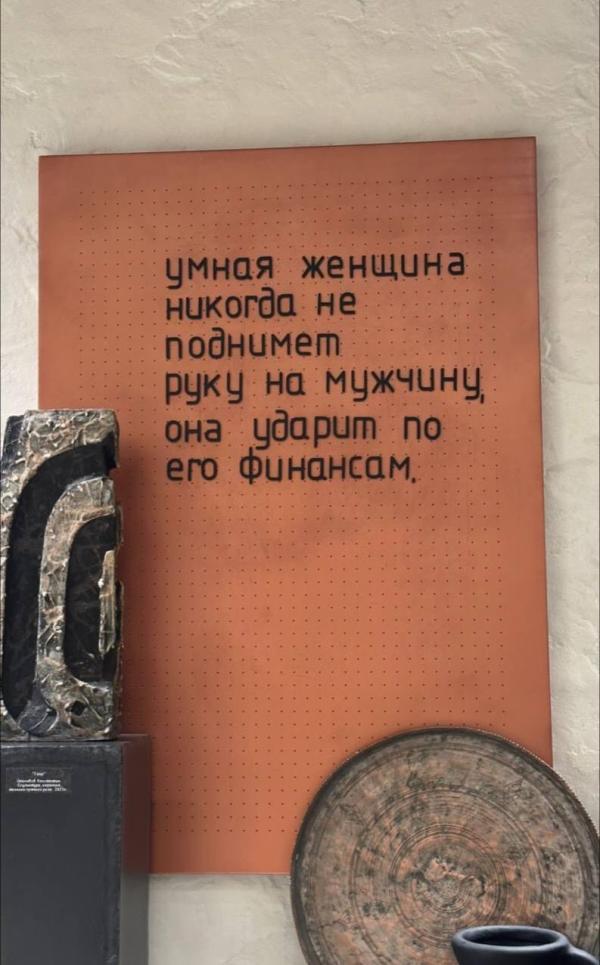 умная женщина
никогда не
поднимет
руку на мужчину,
она ударит по
его финансам.